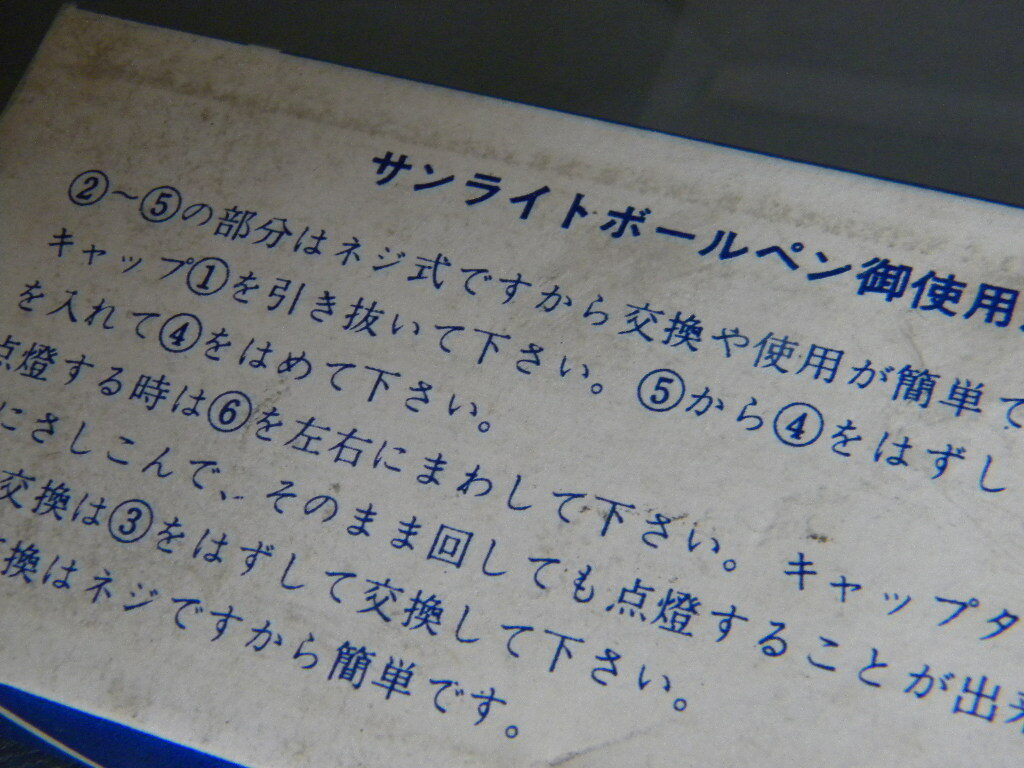 サンライトボールペン御使用
②〜⑤の部分はネジ式ですから交換や使用が簡単で
キャップ①を引き抜いて下さい。⑤から④をはずし
を入れて④をはめて下さい。
点燈する時は⑥を左右にまわして下さい。キャップタ
にさしこんで、そのまま回しても点燈することが出来
交換は③をはずして交換して下さい。
換はネジですから簡単です。